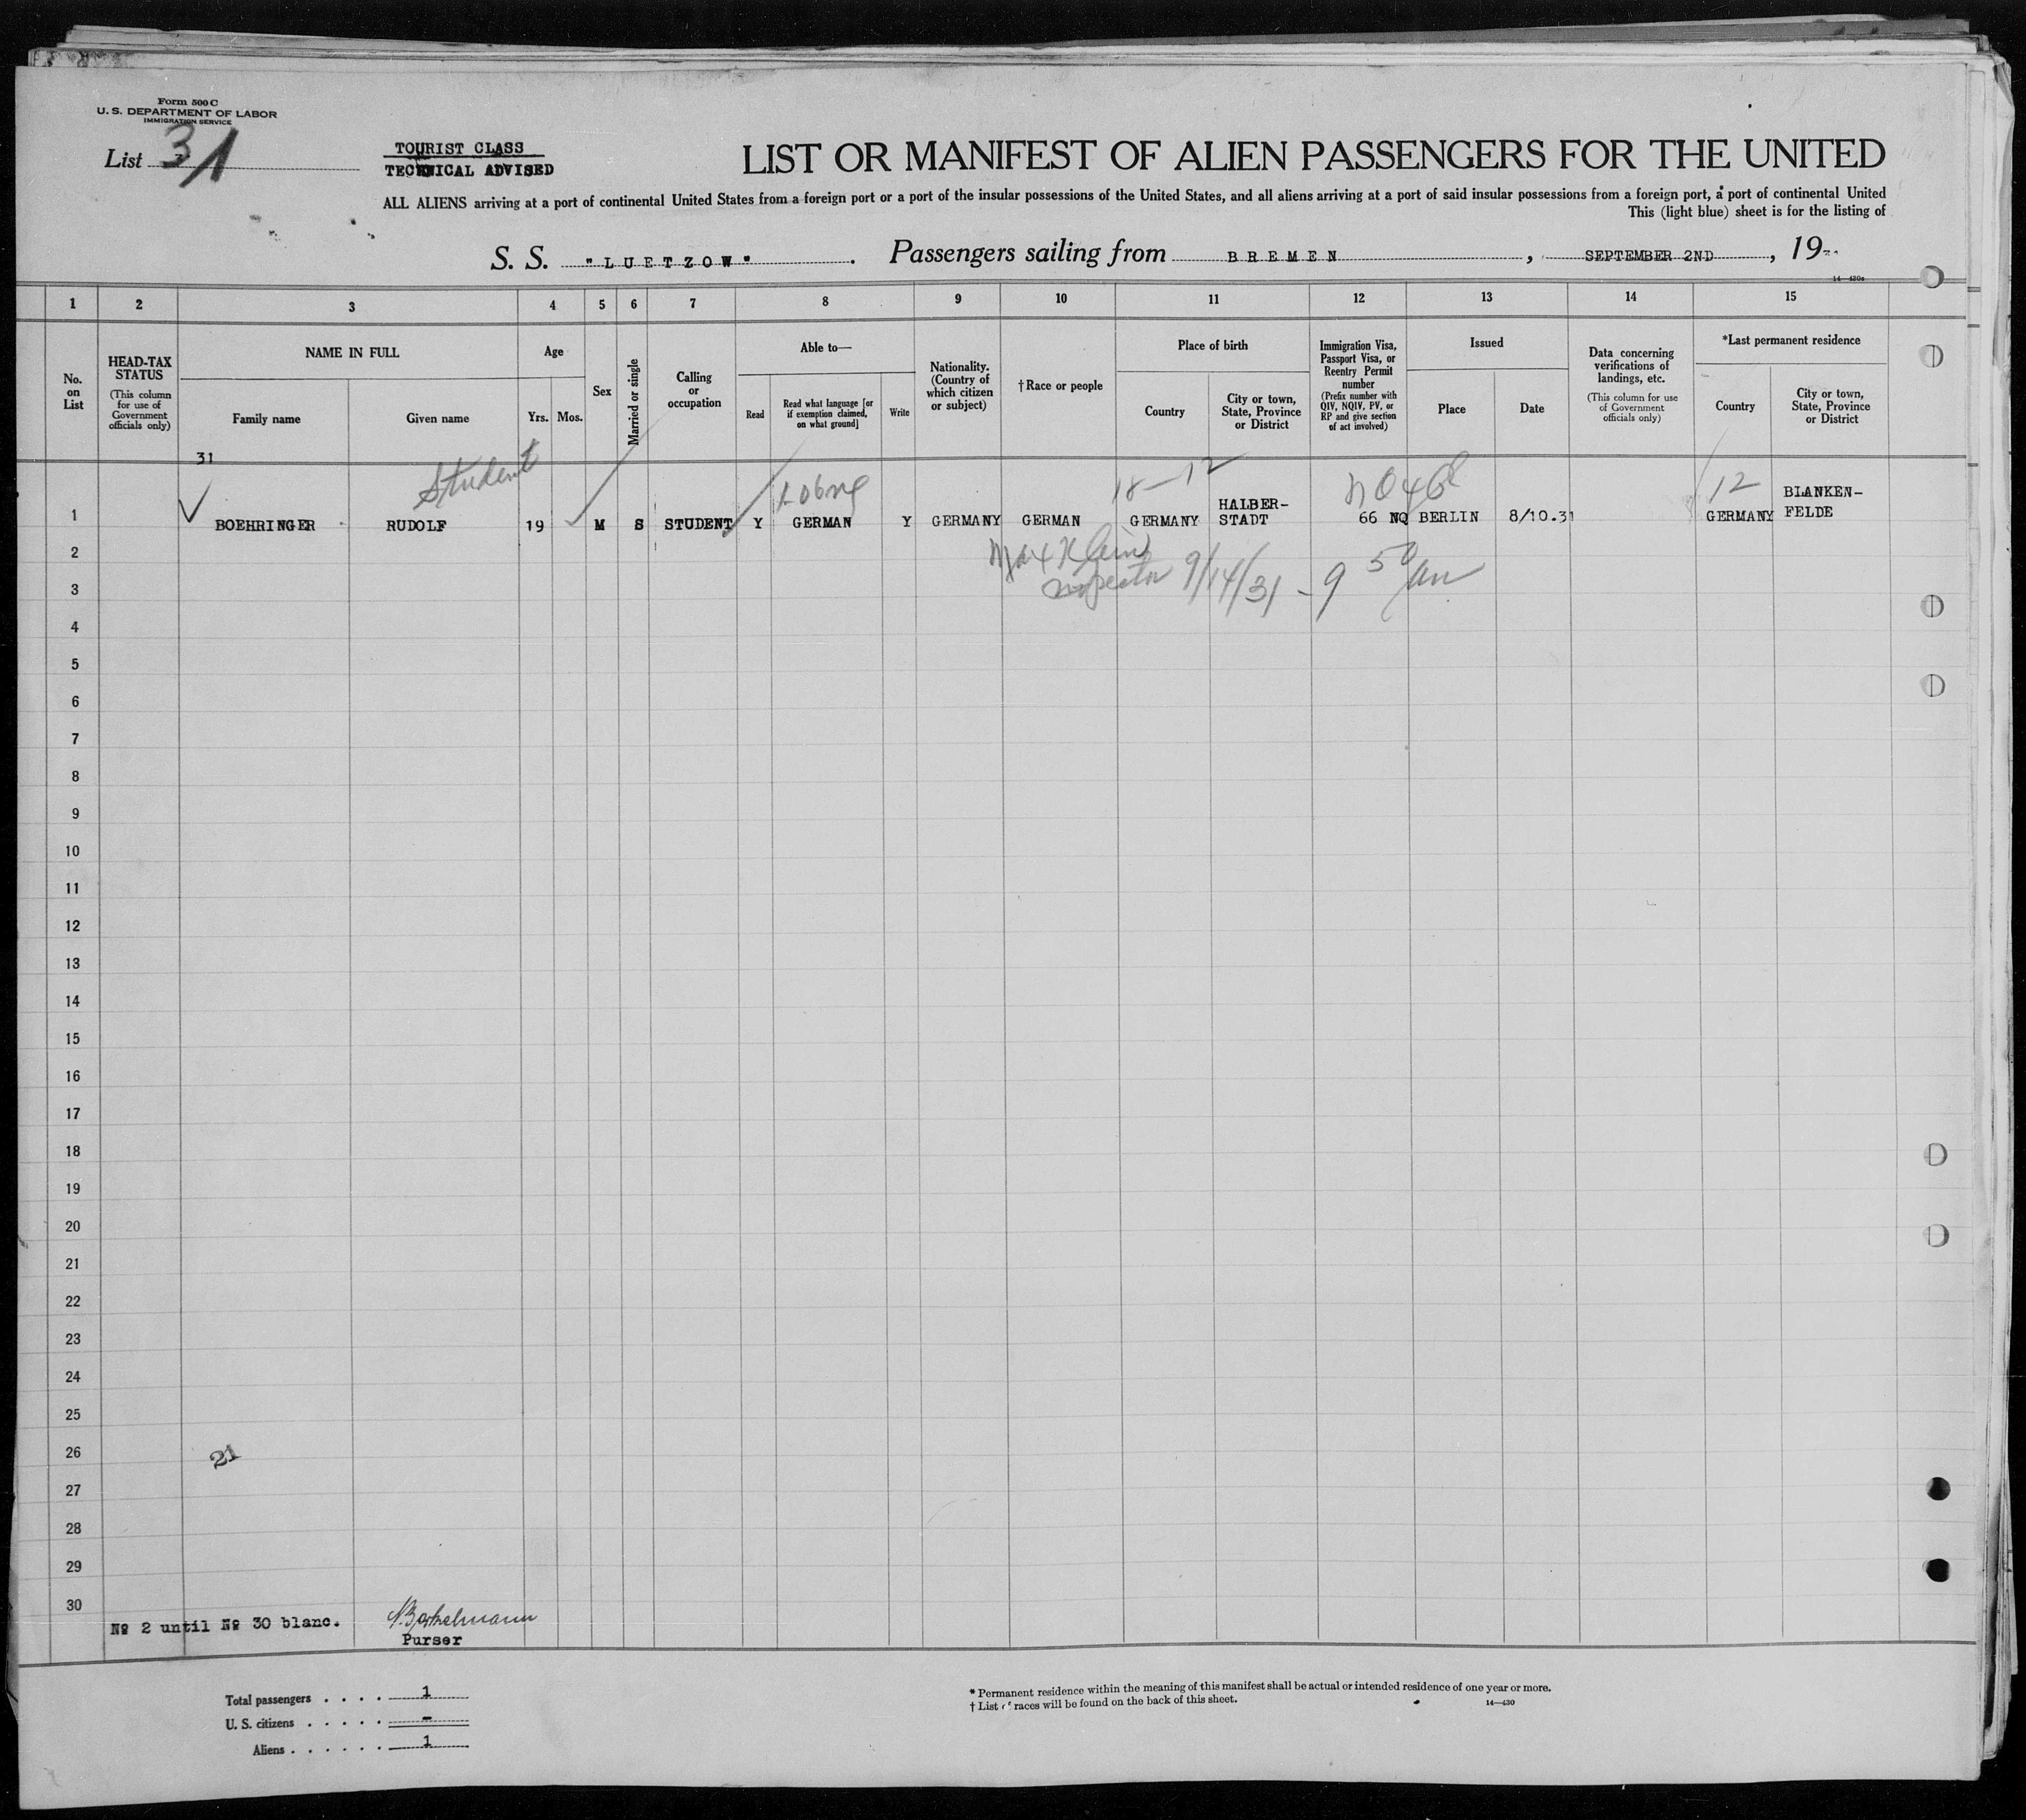 Form 500 C
U. S. DEPARTMENT OF LABOR
IMMIGRATION SERVICE
List 31
TOURIST CLASS
TECHNICAL ADVISED
LIST OR MANIFEST OF ALIEN PASSENGERS FOR THE UNITED
ALL ALIENS arriving at a port of continental United States from a foreign port or a port of the insular possessions of the United States, and all aliens arriving at a port of said insular possessions from a foreign port, a port of continental United
This (light blue) sheet is for the listing of
S. S. "LUETZOW" . Passengers sailing from BREMEN , SEPTEMBER 2ND , 19
14—430a
1 2 3 4 5 6 7 8 9 10 11 12 13 14 15
No. on List
HEAD-TAX STATUS
(This column for use of Government officials only)
NAME IN FULL
Family name
Given name
Age
Yrs. Mos.
Sex
Married or single
Calling or occupation
Able to—
Read
Read what language [or if exemption claimed, on what ground]
Write
Nationality. (Country of which citizen or subject)
†Race or people
Place of birth
Country
City or town, State, Province or District
Immigration Visa, Passport Visa, or Reentry Permit number
(Prefix number with QIV, NQIV, PV, or RP and give section of act involved)
Issued
Place
Date
Data concerning verifications of landings, etc.
(This column for use of Government officials only)
*Last permanent residence
Country
City or town, State, Province or District
31
Student
18—12
12
1 BOEHRINGER RUDOLF 19 M S STUDENT Y GERMAN Y GERMANY GERMAN GERMANY HALBER-STADT 66 NQ BERLIN 8/10.31 GERMANY BLANKEN-FELDE
2
Max Klein
3
Inspector 9/14/31 - 9 50 am
4
5
6
7
8
9
10
11
12
13
14
15
16
17
18
19
20
21
22
23
24
25
26
21
27
28
29
30
№ 2 until № 30 blanc.
Purser
Total passengers . . . . 1
U. S. citizens . . . . . -
Aliens . . . . . . 1
* Permanent residence within the meaning of this manifest shall be actual or intended residence of one year or more.
† List of races will be found on the back of this sheet.
14—430